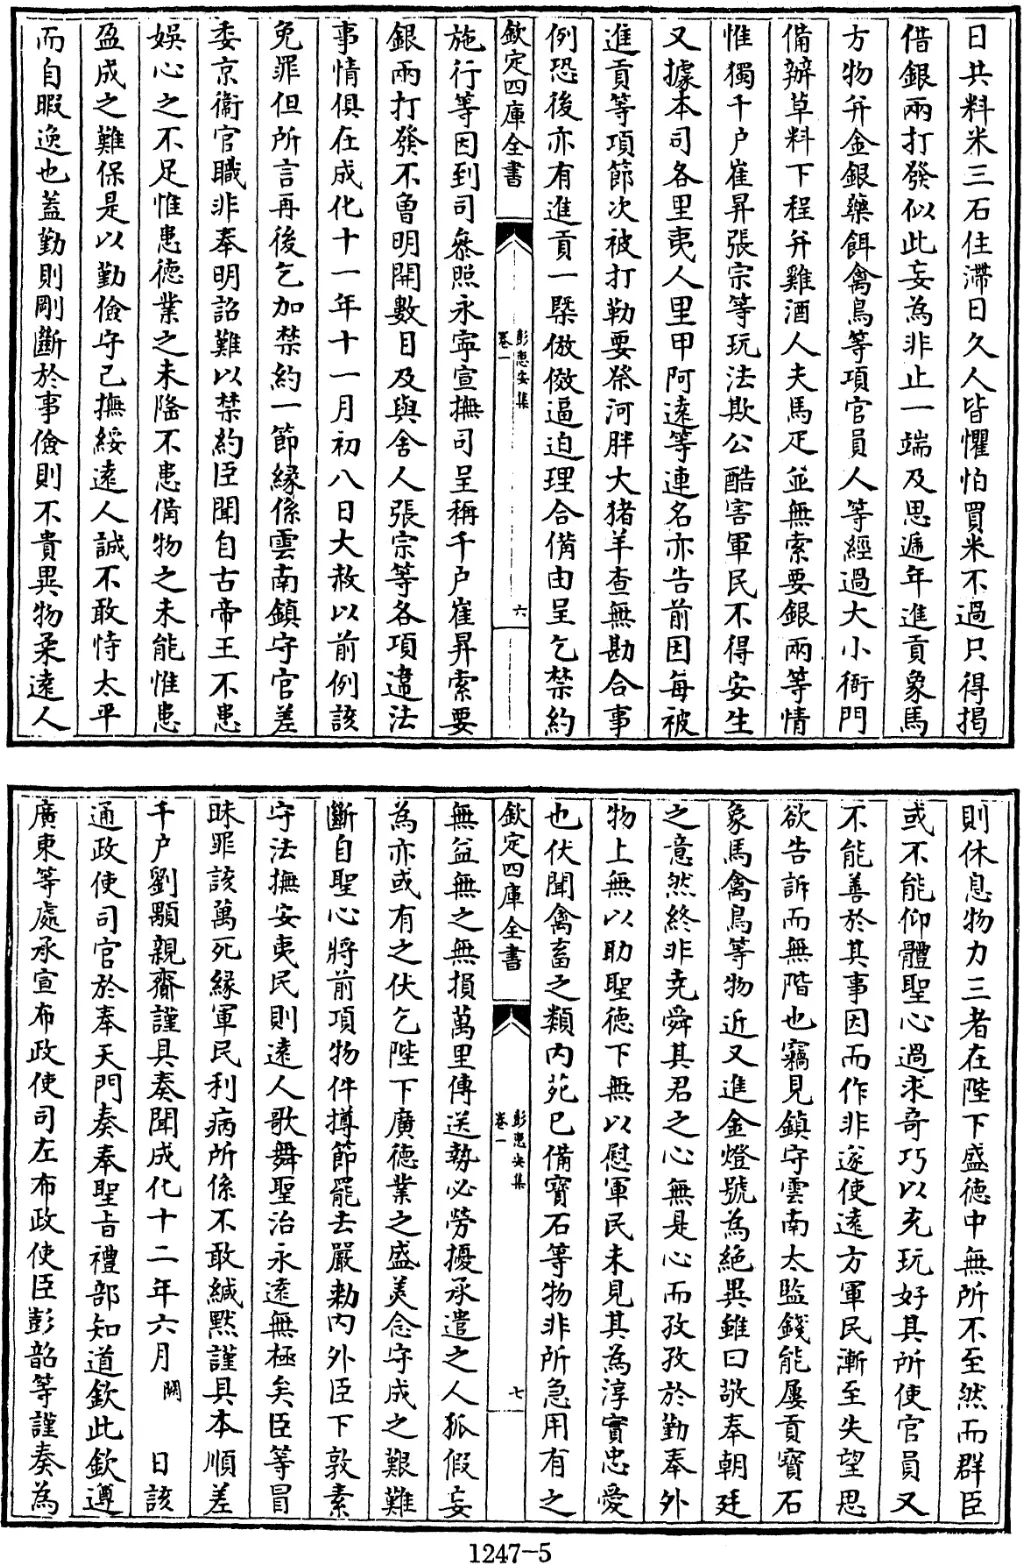 日共料米三石住滯日久人皆懼怕買米不過只得揭
借銀兩打發似此妄為非止一端及思遞年進貢象馬
方物并金銀藥餌禽鳥等項官員人等經過大小衙門
備辦草料下程并雞酒人夫馬疋並無索要銀兩等情
惟獨千户崔昇張宗等玩法欺公酷害軍民不得安生
又據本司各里夷人里甲阿遠等連名亦告前因每被
進貢等項節次被打勒要祭河胖大猪羊查無勘合事
例恐後亦有進貢一槩倣傚逼迫理合備由呈乞禁約
欽定四庫全書
彭惠安集
卷一
六
施行等因到司叅照永寜宣撫司呈稱千户崔昇索要
銀兩打發不曾明開數目及與舍人張宗等各項違法
事情俱在成化十一年十一月初八日大赦以前例該
免罪但所言再後乞加禁約一節緣係雲南鎮守官差
委京衞官職非奉明詔難以禁約臣聞自古帝王不患
娛心之不足惟患德業之未隆不患備物之未能惟患
盈成之難保是以勤儉守己撫綏遠人誠不敢恃太平
而自暇逸也蓋勤則剛斷於事儉則不貴異物柔遠人
則休息物力三者在陛下盛德中無所不至然而群臣
或不能仰體聖心過求奇巧以充玩好其所使官員又
不能善於其事因而作非遂使遠方軍民漸至失望思
欲告訴而無階也竊見鎮守雲南太監錢能屢貢寶石
象馬禽鳥等物近又進金燈號為絶異雖曰敬奉朝廷
之意然終非堯舜其君之心無是心而孜孜於勤奉外
物上無以助聖德下無以慰軍民未見其為淳實忠愛
也伏聞禽畜之類内苑已備寶石等物非所急用有之
欽定四庫全書
彭惠安集
卷一
七
無益無之無損萬里傳送勢必勞擾承遣之人狐假妄
為亦或有之伏乞陛下廣德業之盛美念守成之艱難
斷自聖心將前項物件撙節罷去嚴勅内外臣下敦素
守法撫安夷民則遠人歌舞聖治永遠無極矣臣等冒
昧罪該萬死緣軍民利病所係不敢緘默謹具本順差
千户劉顯親齎謹具奏聞成化十二年六月闕日該
通政使司官於奉天門奏奉聖旨禮部知道欽此欽遵
廣東等處承宣布政使司左布政使臣彭韶等謹奏為
1247-5